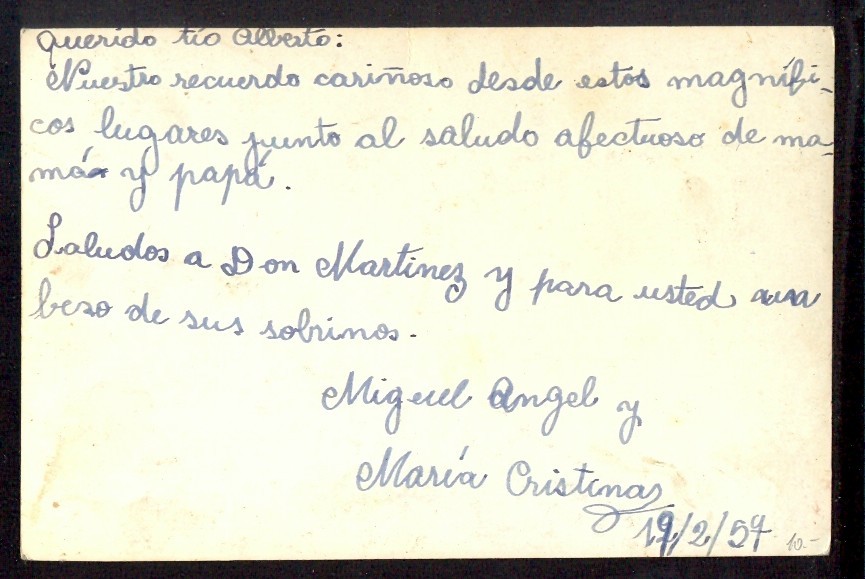 querido tío Alberto:
Nuestro recuerdo cariñoso desde estos magnífi-
cos lugares junto al saludo afectuoso de ma-
má y papá.
Saludos a Don Martinez y para usted una
beso de sus sobrinos.
Miguel Angel y
María Cristina
2/59
10.-